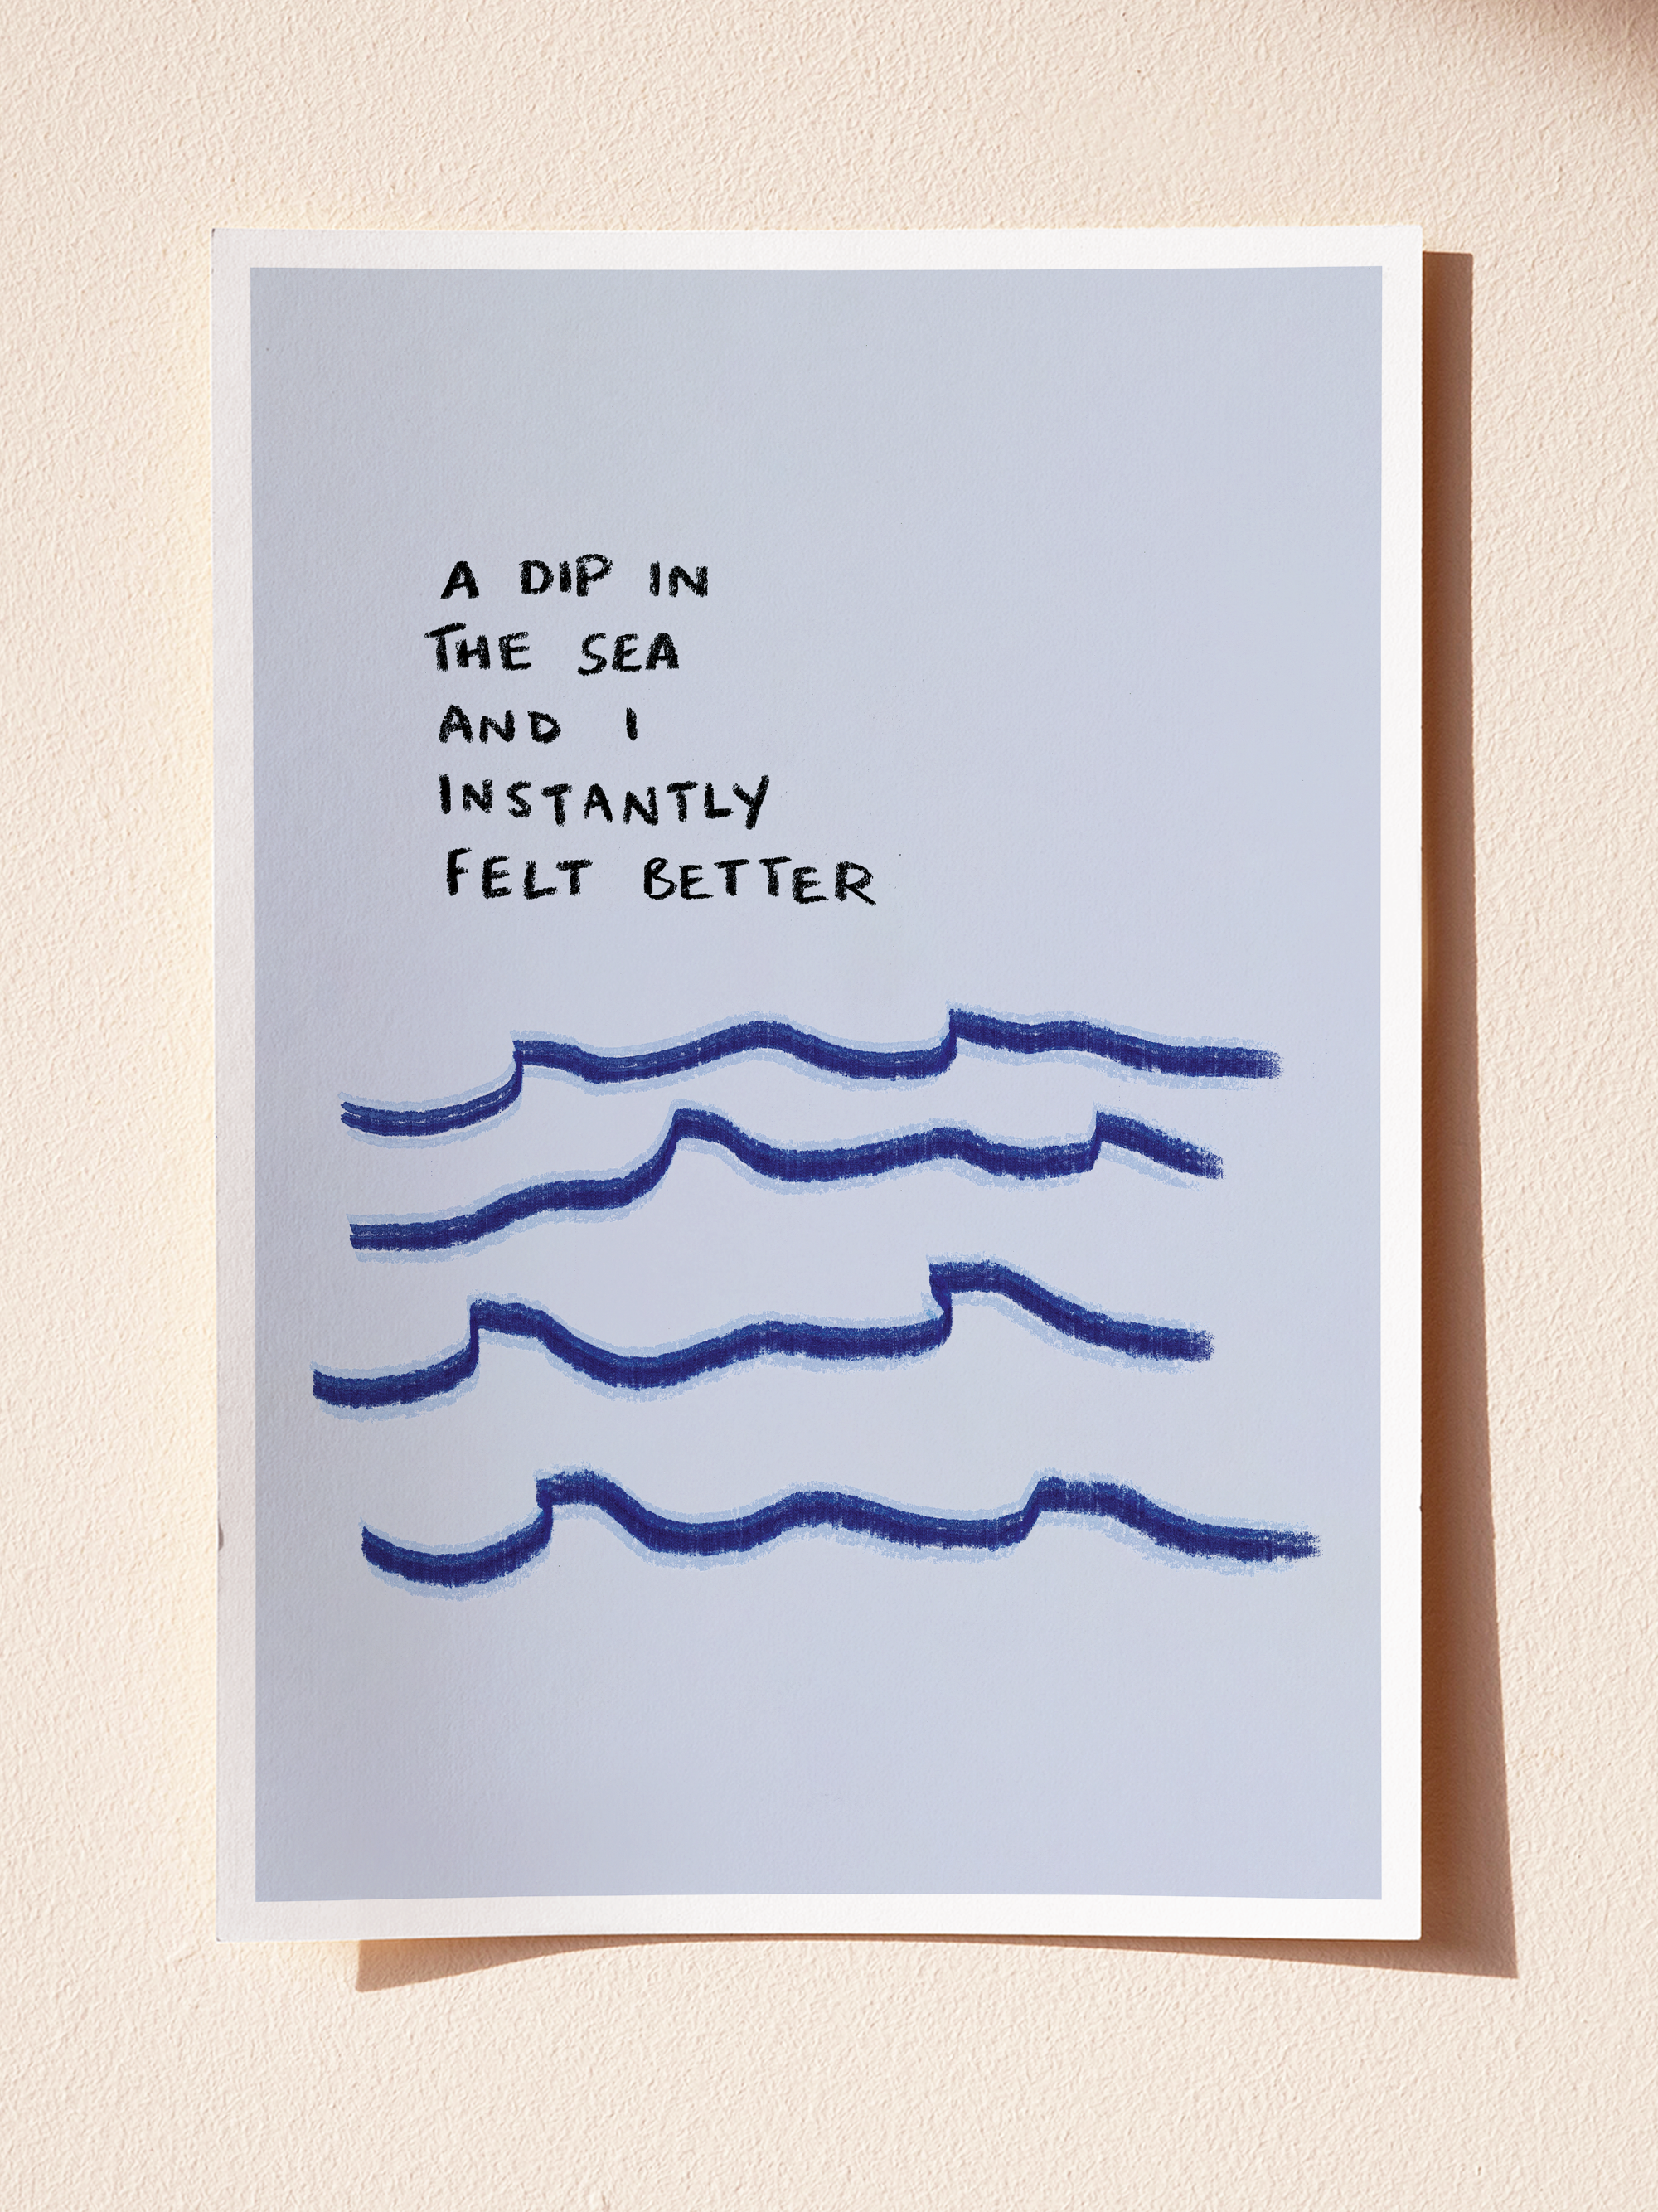 A DIP IN
THE SEA
AND I
INSTANTLY
FELT BETTER